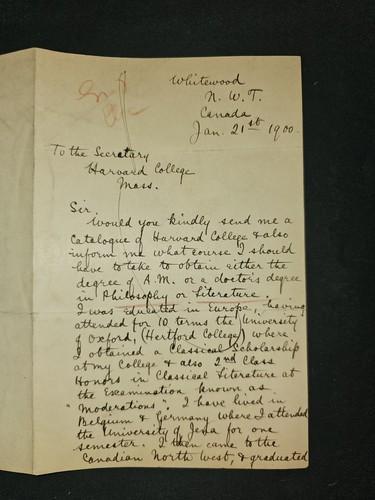 Whitewood
N. W. T.
Canada
Jan. 21st 1900.
To the Secretary
Harvard College
Mass.
Sir.
Would you kindly send me a
Catalogue of Harvard College & also
inform me what course I should
have to take to obtain either the
degree of A.M. or a doctor's degree
in Philosophy or Literature.
I was educated in Europe, having
attended for 10 terms the University
of Oxford, (Hertford College) where
I obtained a Classical Scholarship
at my College & also 2nd Class
Honors in Classical Literature at
the Examination known as
"Moderations". I have lived in
Belgium & Germany where I attended
the University of Jena for one
semester. I then came to the
Canadian North West, & graduated